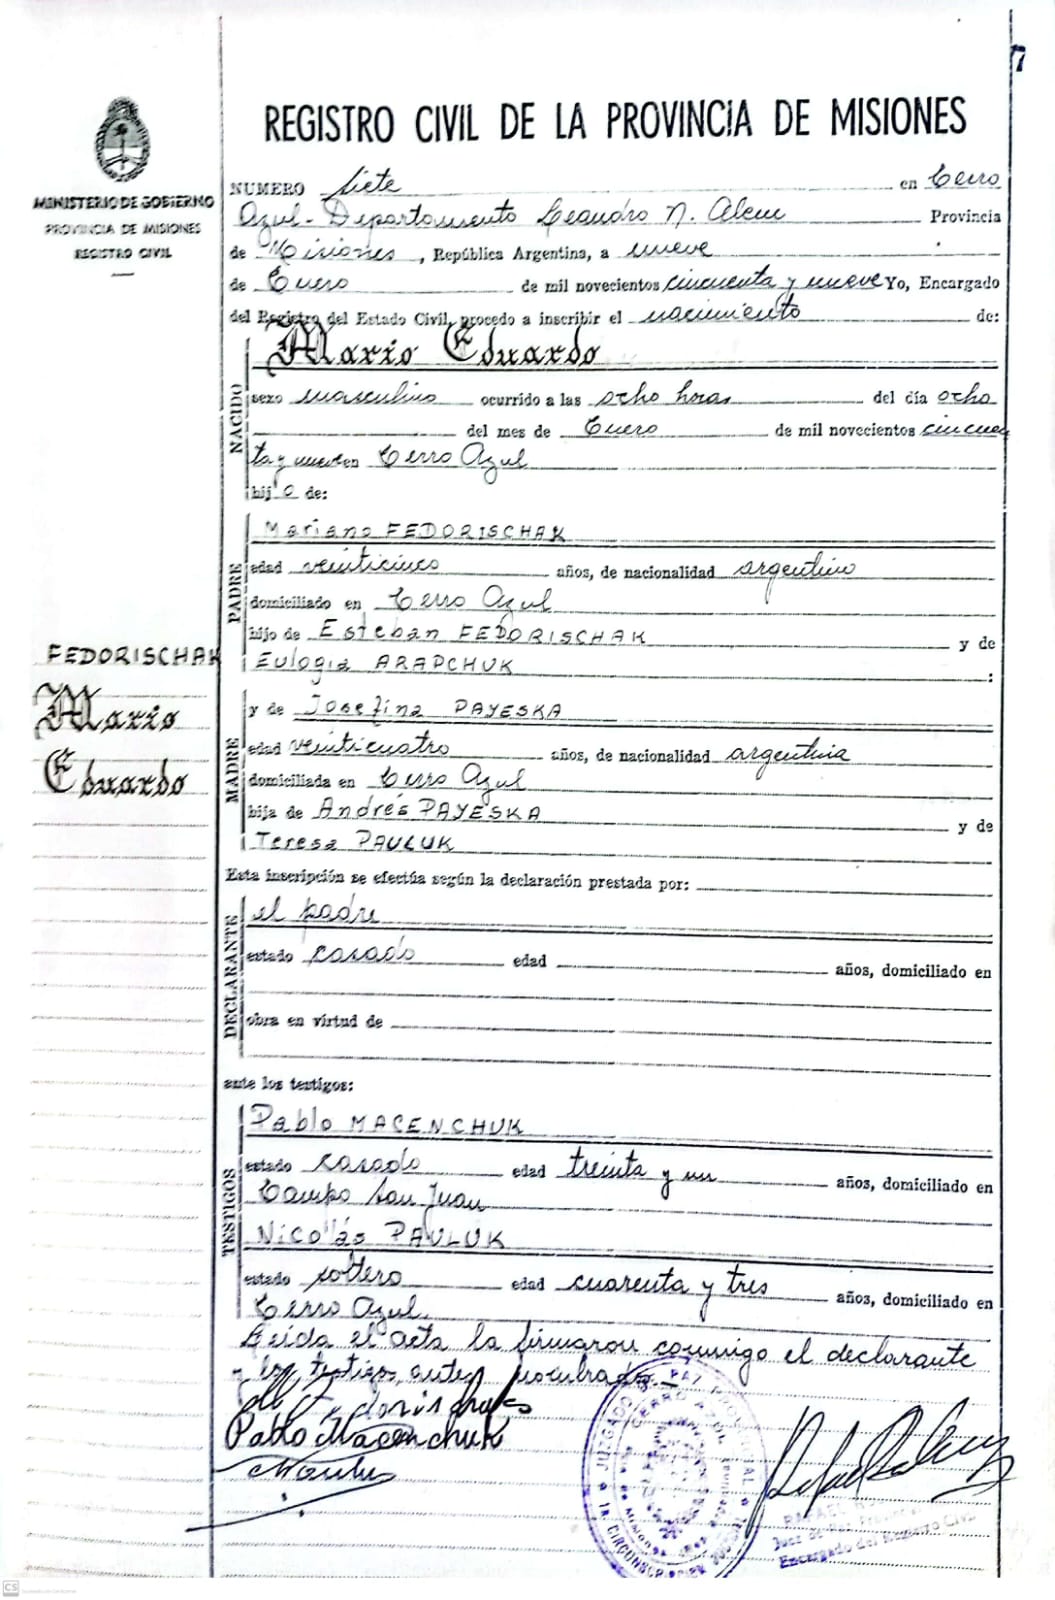 7
REGISTRO CIVIL DE LA PROVINCIA DE MISIONES
MINISTERIO DE GOBIERNO
PROVINCIA DE MISIONES
REGISTRO CIVIL
NUMERO Siete en Cerro
Azul - Departamento Leandro N. Alem Provincia
de Misiones, República Argentina, a nueve
de Enero de mil novecientos cincuenta y nueve Yo, Encargado
del Registro del Estado Civil, procedo a inscribir el nacimiento de:
NACIDO
Mario Eduardo
sexo masculino ocurrido a las ocho horas del día ocho
del mes de Enero de mil novecientos cincuen
ta y nueve en Cerro Azul
hijo de:
PADRE
Mariano FEDORISCHAK
edad veinticinco años, de nacionalidad argentino
domiciliado en Cerro Azul
hijo de Esteban FEDORISCHAK y de
Eulogia ARAPCHUK :
FEDORISCHAK
Mario
Eduardo
MADRE
y de Josefina PAYESKA
edad veinticuatro años, de nacionalidad argentina
domiciliada en Cerro Azul
hija de Andrés PAYESKA y de
Teresa PAULUK
Esta inscripción se efectúa según la declaración prestada por:
DECLARANTE
el padre
estado casado edad años, domiciliado en
obra en virtud de
ante los testigos:
TESTIGOS
Pablo MACENCHUK
estado casado edad treinta y un años, domiciliado en
Campo San Juan
Nicolás PAULUK
estado soltero edad cuarenta y tres años, domiciliado en
Cerro Azul.
Leida el acta la firmaron conmigo el declarante
y los testigos antes nombrados.-
Pablo Macenchuk
JUZGADO DE PAZ PROVINCIAL
CERRO AZUL
1a CIRCUNSCRIPCION
RAFAEL
Juez de Paz Provincial
Encargado del Registro Civil
CS